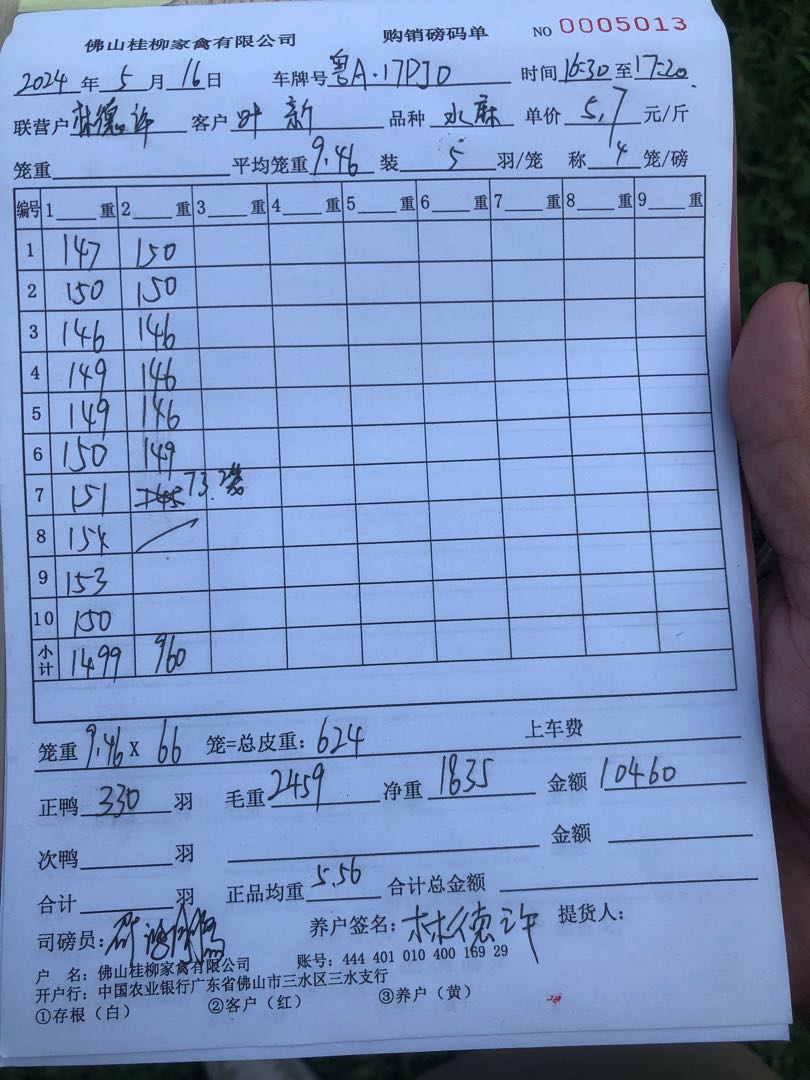 佛山桂柳家禽有限公司 购销磅码单 NO 0005013
2024 年 5 月 16 日 车牌号 粤A·17PJ0 时间 16:30 至 17:20
联营户 林德许 客户 叶新 品种 水麻 单价 5.7 元/斤
笼重 平均笼重 9.46 装 5 羽/笼 称 4 笼/磅
编号 1 重 2 重 3 重 4 重 5 重 6 重 7 重 8 重 9 重
1 147 150
2 150 150
3 146 146
4 149 146
5 149 146
6 150 149
7 151 73.2笼
8 154
9 153
10 150
小计 1499 960
笼重 9.46 X 66 笼=总皮重: 624 上车费
正鸭 330 羽 毛重 2459 净重 1835 金额 10460
次鸭 羽 金额
合计 羽 正品均重 5.56 合计总金额
司磅员: 养户签名: 林德许 提货人:
户 名: 佛山桂柳家禽有限公司 账号: 444 401 010 400 169 29
开户行: 中国农业银行广东省佛山市三水区三水支行
①存根(白) ②客户(红) ③养户(黄)